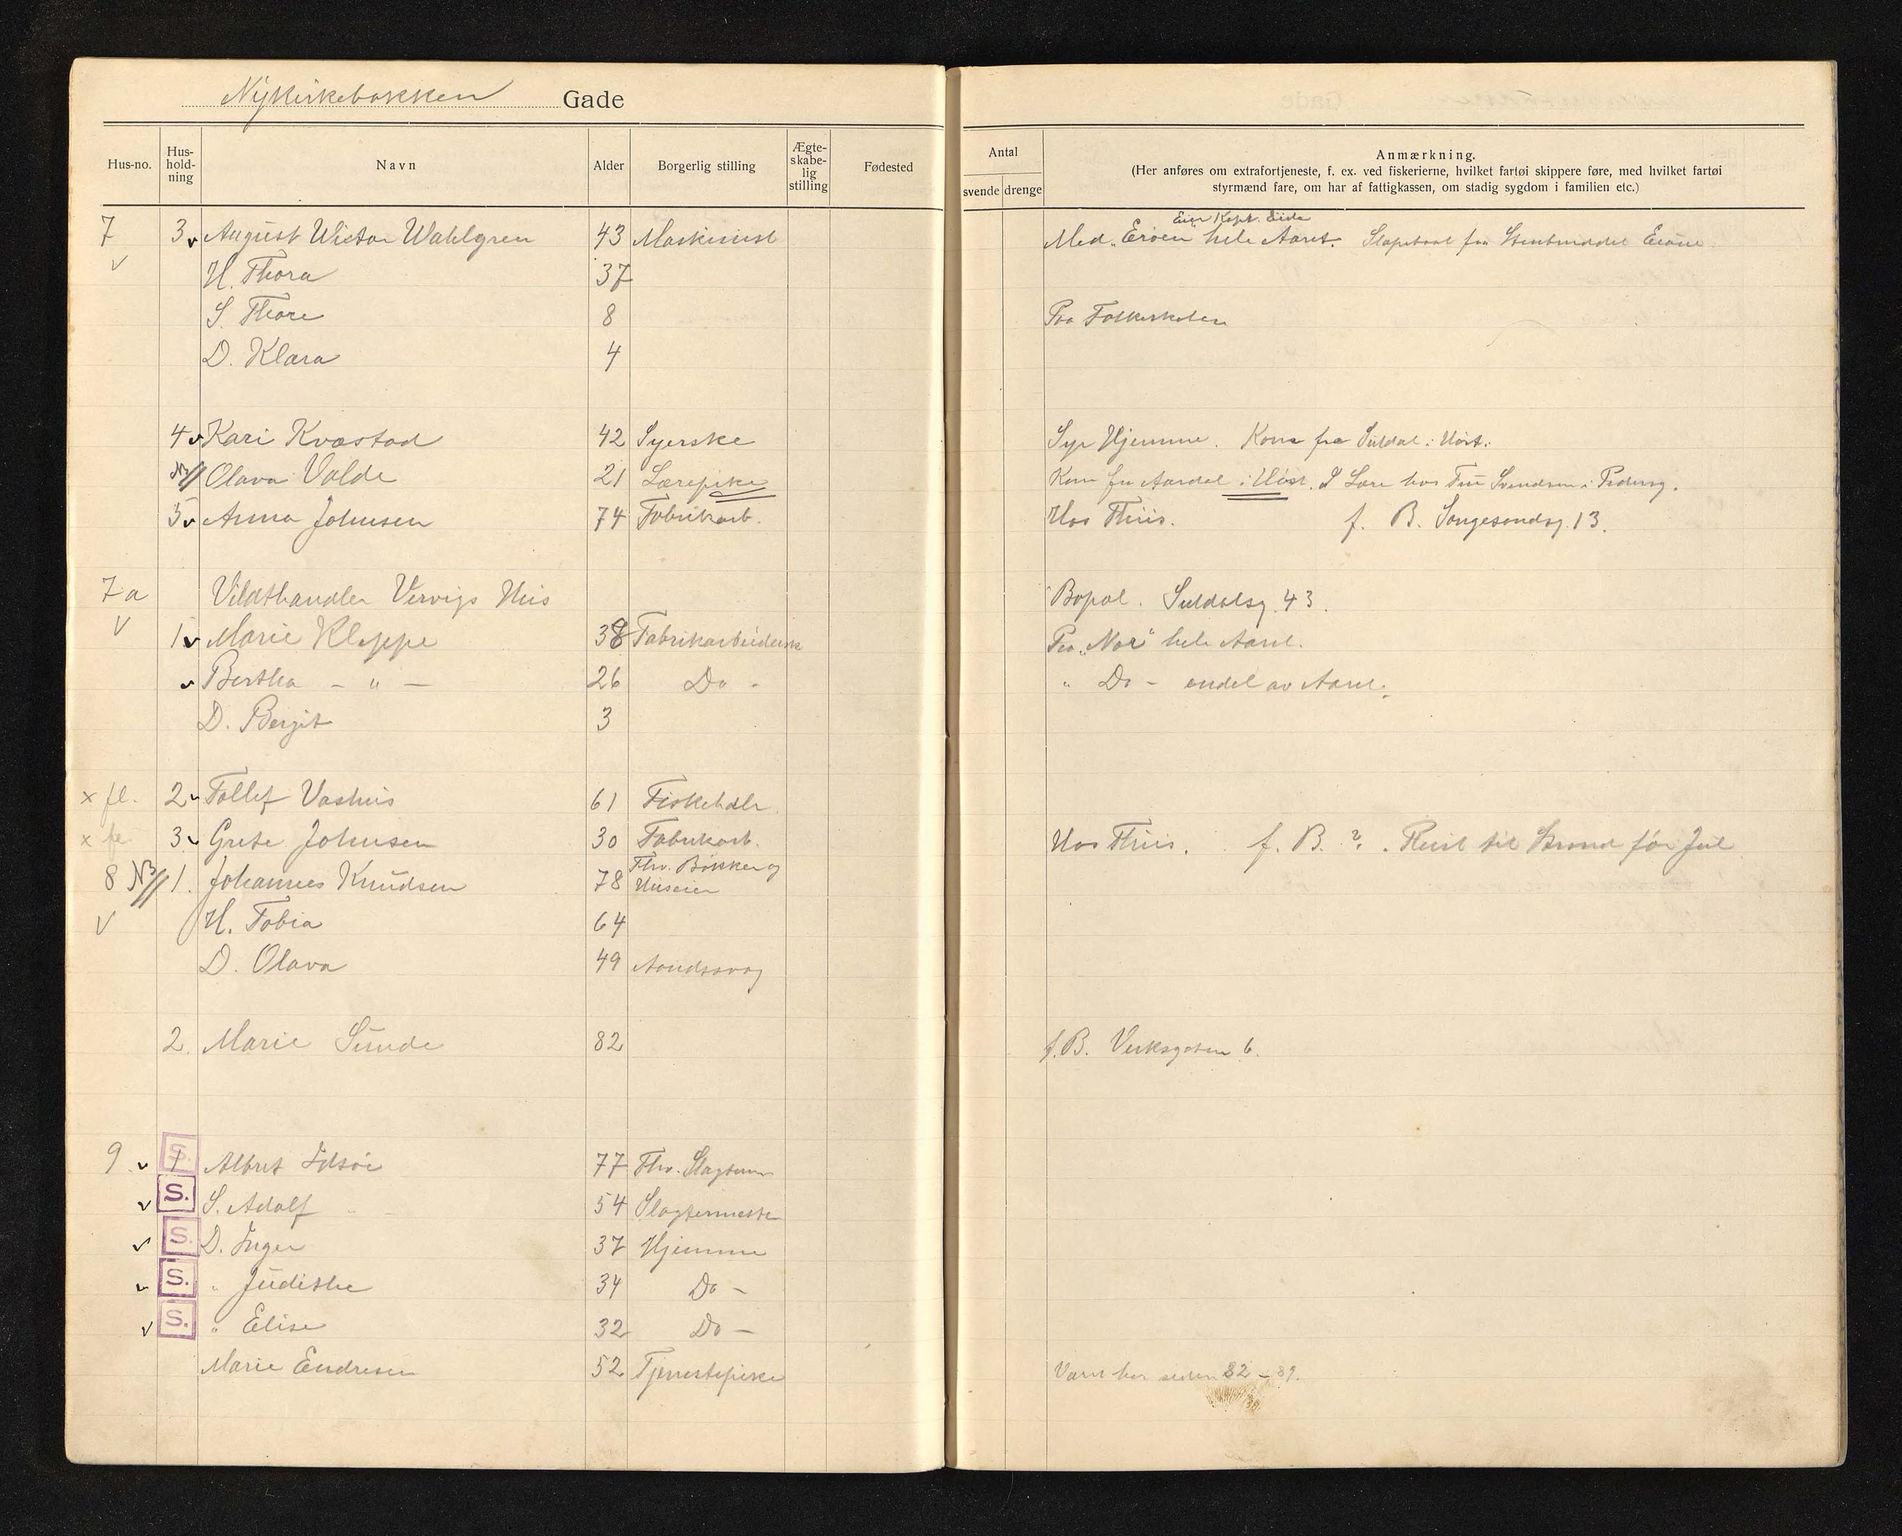 Nykirkebakken Gade
Hus-no. Hus-hold-ning Navn Alder Borgerlig stilling Ægte-skabe-lig stilling Fødested Antal svende drenge Anmærkning.
(Her anføres om extrafortjeneste, f. ex. ved fiskerierne, hvilket fartøi skippere føre, med hvilket fartøi
styrmænd fare, om har af fattigkassen, om stadig sygdom i familien etc.)
Eier Kapt. Eide
7 3 v August Victor Wahlgren 43 Maskinist Med „Eröen" hele Aaret.
v H. Thora 37
S. Thore 8 Paa Folkeskolen
D. Klara 4
4 v Kari Kvæstad 42 Syerske Syr Hjemme. Kom fra Suldal i Høst.
N3// Olava Valde 21 Lærepike Kom fra Aardal i Høst. I Lære hos Fru Svendsen i Pedersg.
5 v Anna Johnsen 74 Fabrikarb. Hos Thiis. f. B. Songesandsg. 13.
7a Vildthandler Vervigs Hus Bopæl. Suldalsg. 43.
v 1 v Marie Kleppe 38 Fabrikarbeiderske Paa „Nor" hele Aaret.
v Bertha — „ — 26 Do - „ Do - endel av Aaret.
D. Bergit 3
x fl. 2 v Tollef Vashus 61 Fiskehdlr.
x fl. 3 v Grete Johnsen 30 Fabrikarb. Hos Thiis. f. B. ? . Reist til Strand før Jul
8 N3// 1. Johannes Knudsen 78 Fhv. Bøkker og Huseier
v H. Tobia 64
D. Olava 49 Aandssvag
2. Marie Sunde 82 f. B. Verksgaten 6.
9 v 1 S. Albret Idsøe 77 Fhv. Slagterm
v S. S. Adolf „ 54 Slagtermester
v S. D. Inger 37 Hjemme
v S. „ Judithe 34 Do -
v S. „ Elise 32 Do -
Marie Endresen 52 Tjenestepike Været her siden 82 - 89.